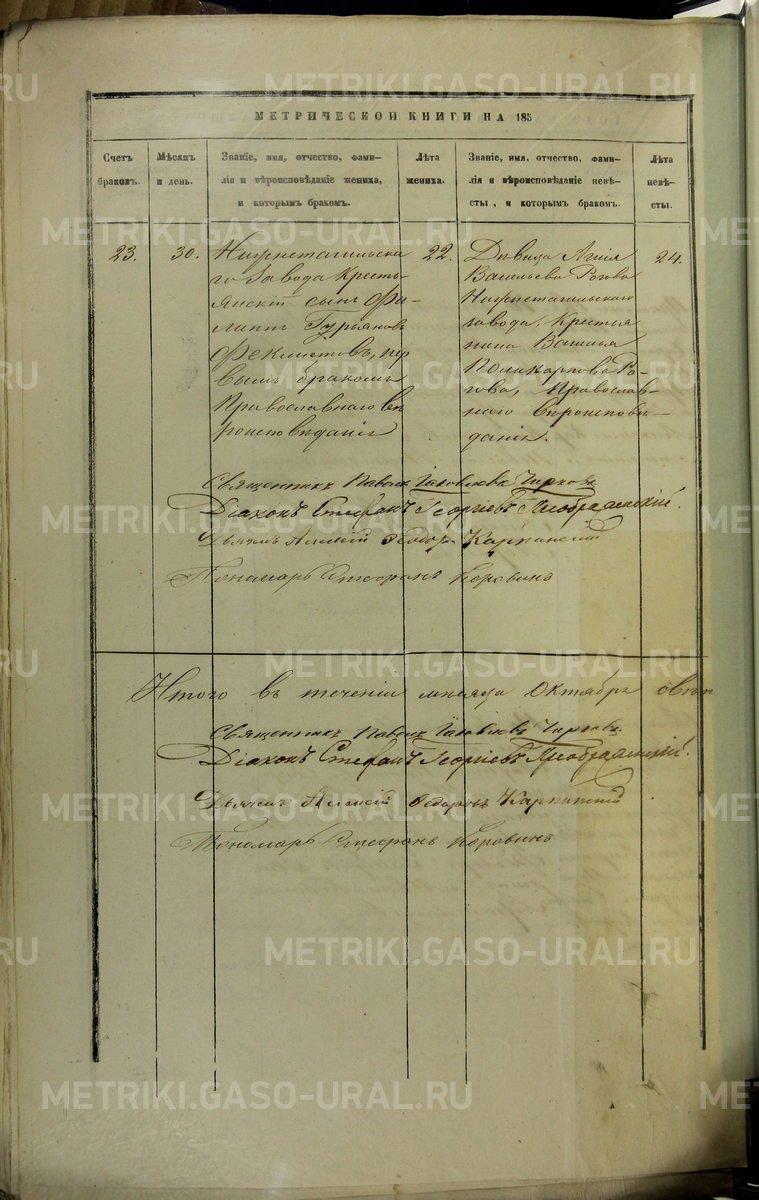 МЕТРИЧЕСКОЙ КНИГИ НА 185
Счетъ браковъ.
Мѣсяцъ и день.
Званіе, имя, отчество, фами-
лія и вѣроисповѣданіе жениха,
и которымъ бракомъ.
Лѣта жениха.
Званіе, имя, отчество, фами-
лія и вѣроисповѣданіе невѣ-
сты, и которымъ бракомъ.
Лѣта невѣ-
сты.
23.
30.
Нижнетагильска
го Завода Кресть-
янскій сынъ Фи-
липпъ Гурьяновъ
Феклистовъ, пер
вымъ бракомъ
Православнаго вѣ
роисповѣданія
22.
Дѣвица Агнія
Васильева Рогова
Нижнетагильскаго
завода, Крестья
нина Василья
Поликарпова Ро-
гова, Православ-
наго вѣроисповѣ-
данія.
24.
Священникъ Павелъ Іаковлевъ Чирковъ
Діаконъ Стефанъ Георгіевъ Преображенскій.
Дьячекъ Алексій Ѳедор. Карпинскій
Пономарь Стефанъ Коровинъ
Итого въ теченіи мѣсяца Октября
Священникъ Павелъ Іаковлевъ Чирковъ.
Діаконъ Стефанъ Георгіевъ Преображенскій.
Дьячекъ Алексій Ѳедоровъ Карпинскій
Пономарь Стефанъ Коровинъ
METRIKI.GASO-URAL.RU